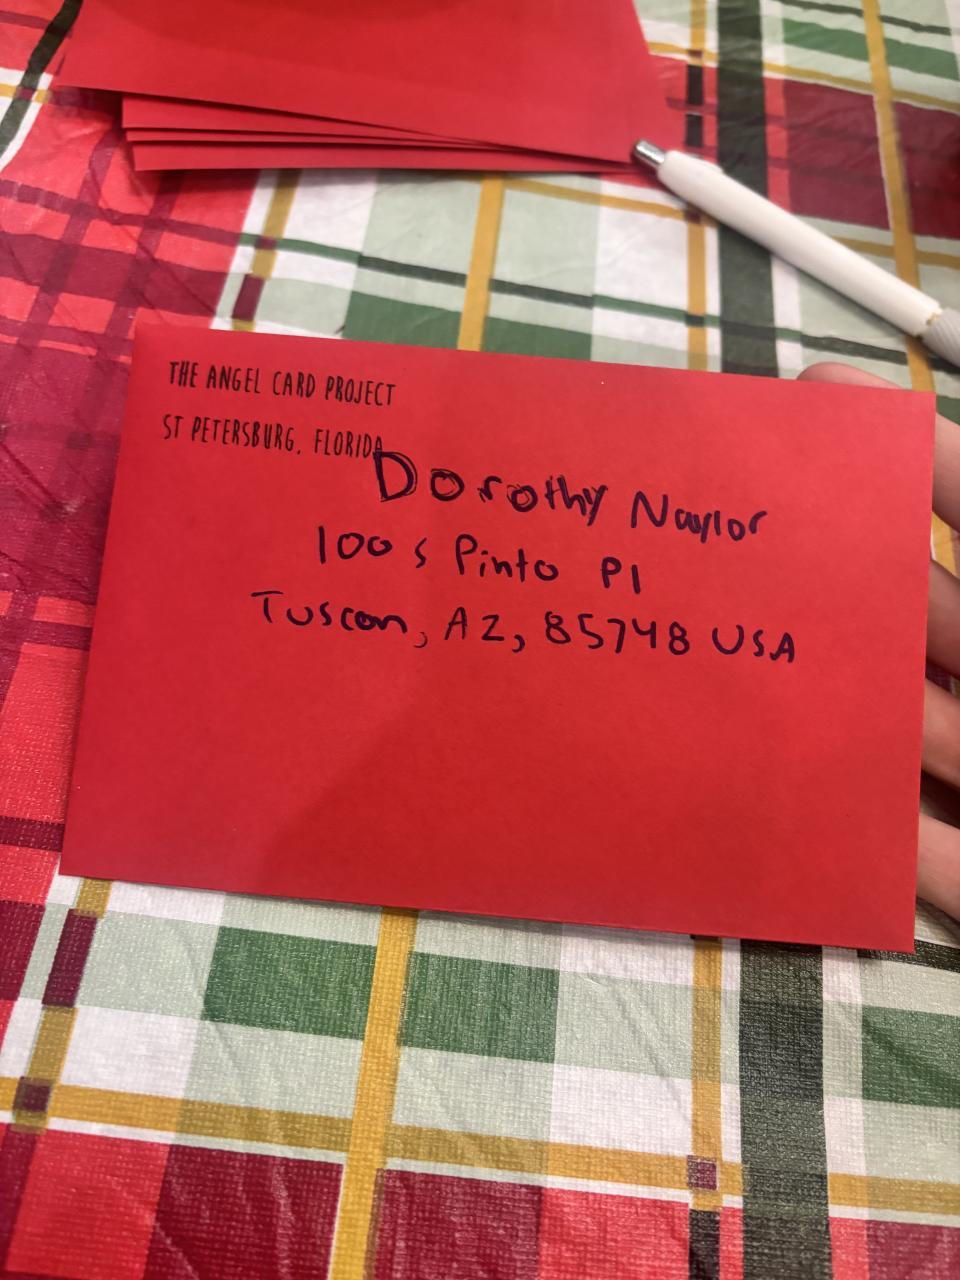 THE ANGEL CARD PROJECT
ST PETERSBURG, FLORIDA
Dorothy Naylor
100 S Pinto Pl
Tuscon, AZ, 85748 USA